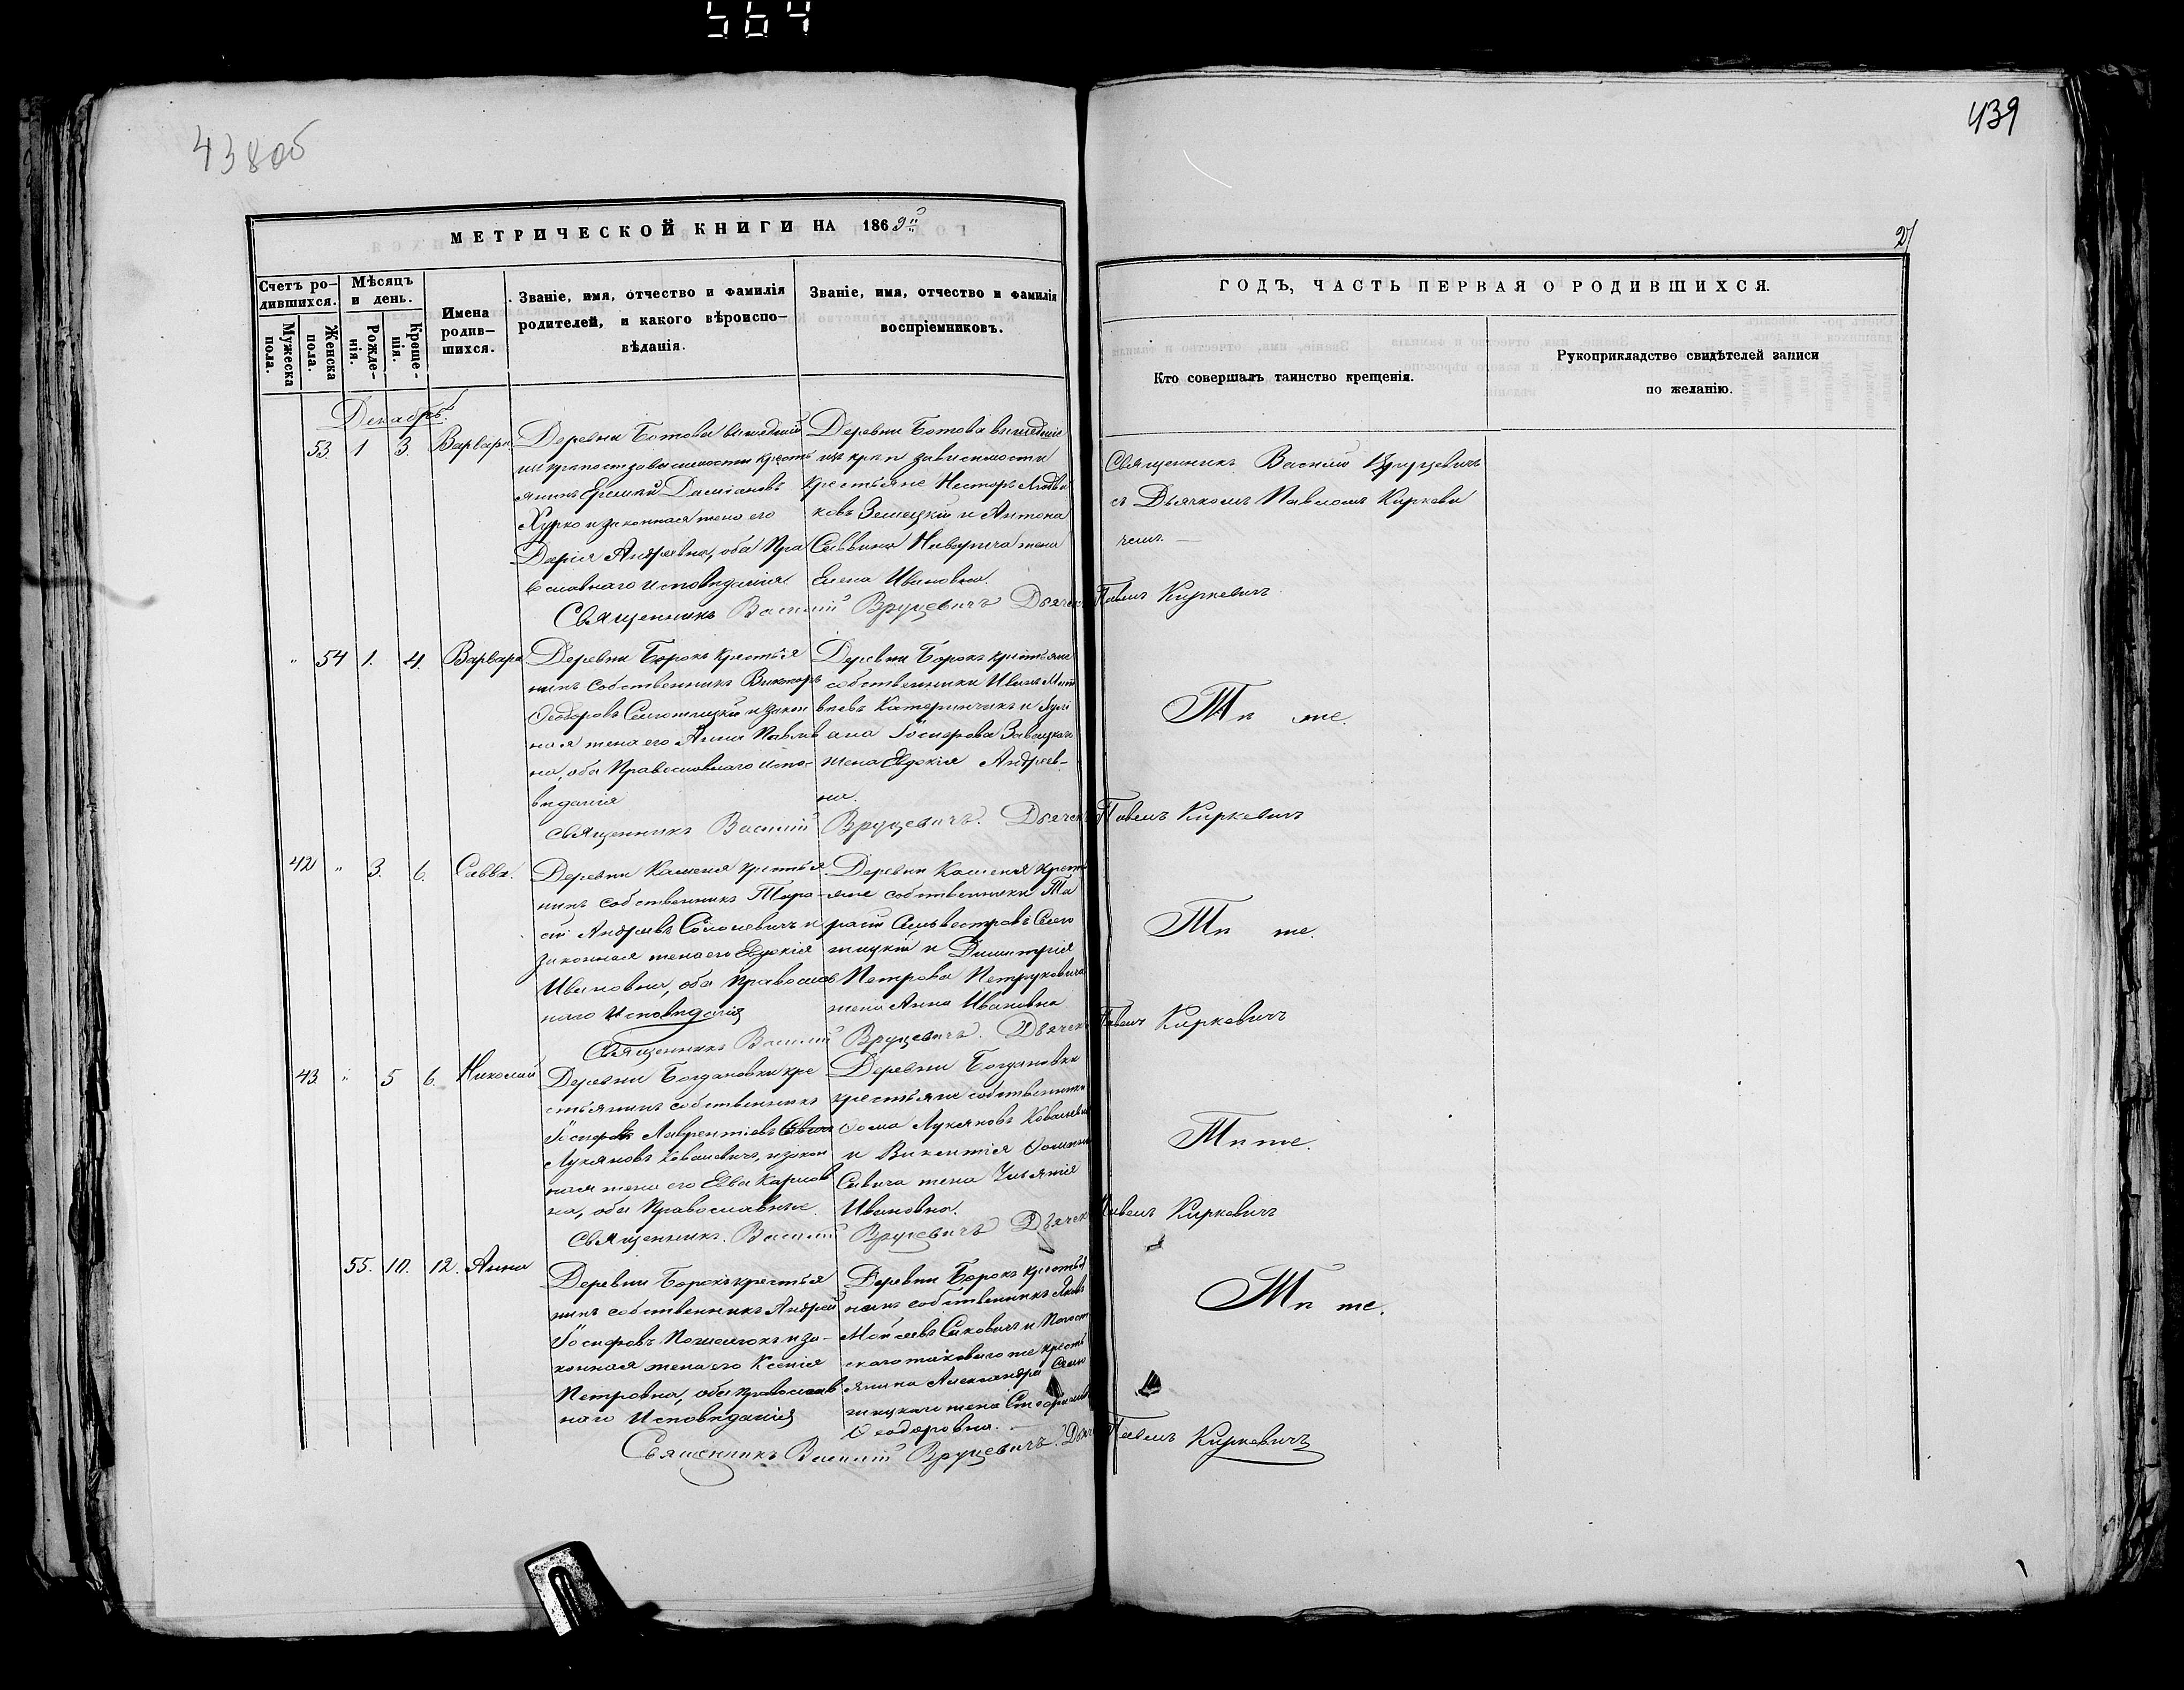 564
438об
439
МЕТРИЧЕСКОЙ КНИГИ НА 1869
21
ГОДЪ, ЧАСТЬ ПЕРВАЯ О РОДИВШИХСЯ.
Счетъ ро-
дившихся.
Мужеска
пола.
Женска
пола.
Мѣсяцъ
и день.
Рожде-
нія.
Креще-
нія.
Имена
родив-
шихся.
Званіе, имя, отчество и фамилія
родителей, и какого вѣроиспо-
вѣданія.
Званіе, имя, отчество и фамилія
воспріемниковъ.
Кто совершалъ таинство крещенія.
Рукоприкладство свидѣтелей записи
по желанію.
Декабрь.
53. 1 3. Варвара
Деревни Ботова вышедшій
крестъ
янинъ Еремѣй Даміановъ
Хурко и законная жена его
Дарія Андреевна, оба Пра
вославнаго исповѣданія
Деревни Ботова вышедшіе
изъ крѣп зависимости
крестьяне Несторъ
Земецкій и Антона
Саввина жена
Елена Ивановна.
Священникъ Василій Вруцевичъ
съ Дьячкомъ Павломъ Киркеви
чемъ. —
Священникъ Василій Вруцевичъ Дьячекъ Павелъ Киркевичъ
" 54 1. 4. Варвара
Деревни Борокъ крестья
нинъ собственникъ Викторъ
Ѳеодоровъ и закон
ная жена его Анна Павлов
на, оба Православнаго испо-
вѣданія
Деревни Борокъ крестьяне
собственники Иванъ Мат
вѣевъ Катеринчикъ и Іулі
ана Іосифова
жена Евдокія Андреев-
на.
Тѣ же.
Священникъ Василій Вруцевичъ. Дьячекъ Павелъ Киркевичъ
42 " 3. 6. Савва.
Деревни Каменя крестья
нинъ собственникъ Тара-
сій Андреевъ Солоневичъ и
законная жена его Евдокія
Ивановна, оба православ
наго Исповѣданія
Деревни Каменя крестъ
яне собственники Та
расій Сильвестровъ Селю
жицкій и Димитрія
Петрова Петруковича
жена Анна Ивановна
Тѣ же.
Священникъ Василій Вруцевичъ. Дьячекъ Павелъ Киркевичъ
43. " 5 6. Николай
Деревни Богдановки кре
стьянинъ собственникъ
Іосифъ Лаврентіевъ
Лукяновъ Ковалевичъ, и закон
ная жена его Ева Карпов
на, оба Православные.
Деревни Богдановки
крестьяне собственники
Ѳома Лукяновъ
и Викентія
Савича жена Ульянія
Ивановна.
Тѣ же.
Священникъ. Василій Вруцевичъ Дьячекъ Павелъ Киркевичъ
55. 10. 12. Анна
Деревни Борокъ крестья
нинъ собственникъ Андрей
Іосифовъ и за-
конная жена его Ксенія
Петровна, оба православ
наго Исповѣданія
Деревни Борокъ крестья
нинъ собственникъ Яковъ
Мойсеевъ и
такового же кресть
янина Александра Селю
жицкаго жена
Ѳеодоровна.
Тѣ же.
Священникъ Василій Вруцевичъ. Дьячекъ Павелъ Киркевичъ